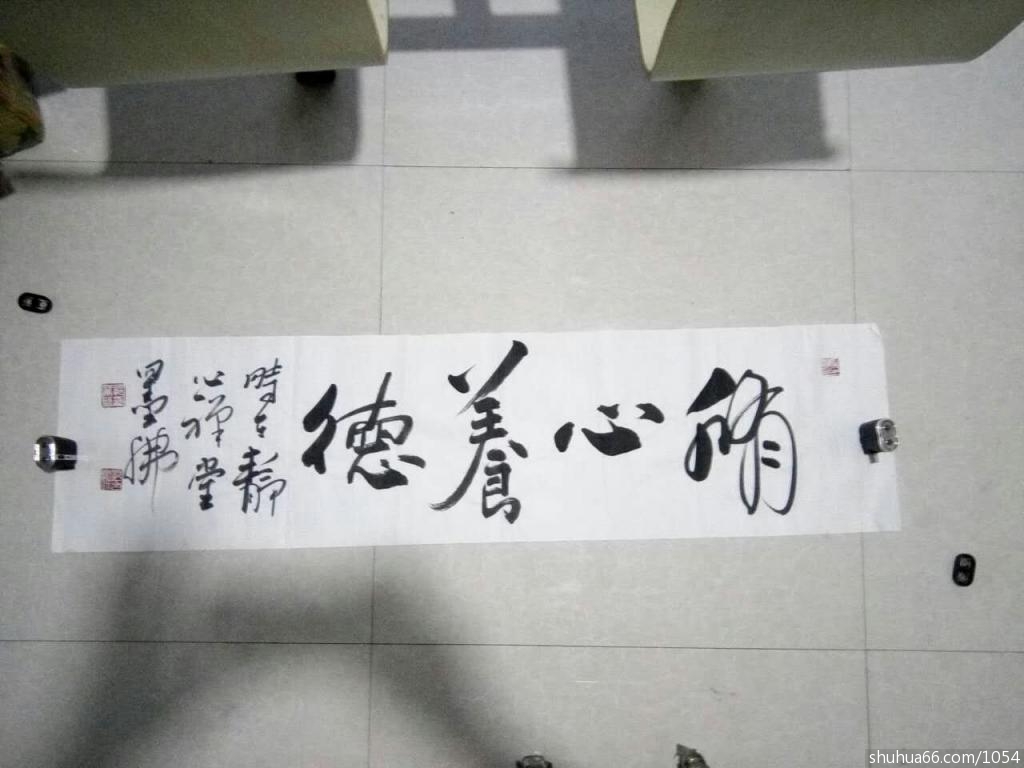 脩心養德
時在靜
心禪堂
墨彿
shuhua66.com/1054